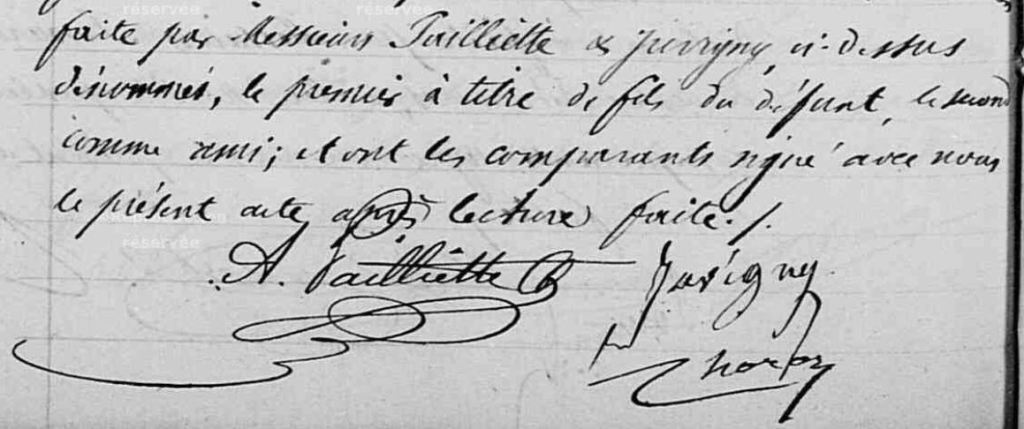 réservée réservée
faite par Messieurs Tailliette & Juvigny, ci-dessus
dénommés, le premier à titre de fils du défunt, le second
comme ami; et ont les comparants signé avec nous
le présent acte après lecture faite./.
réservée
A. Tailliette Juvigny